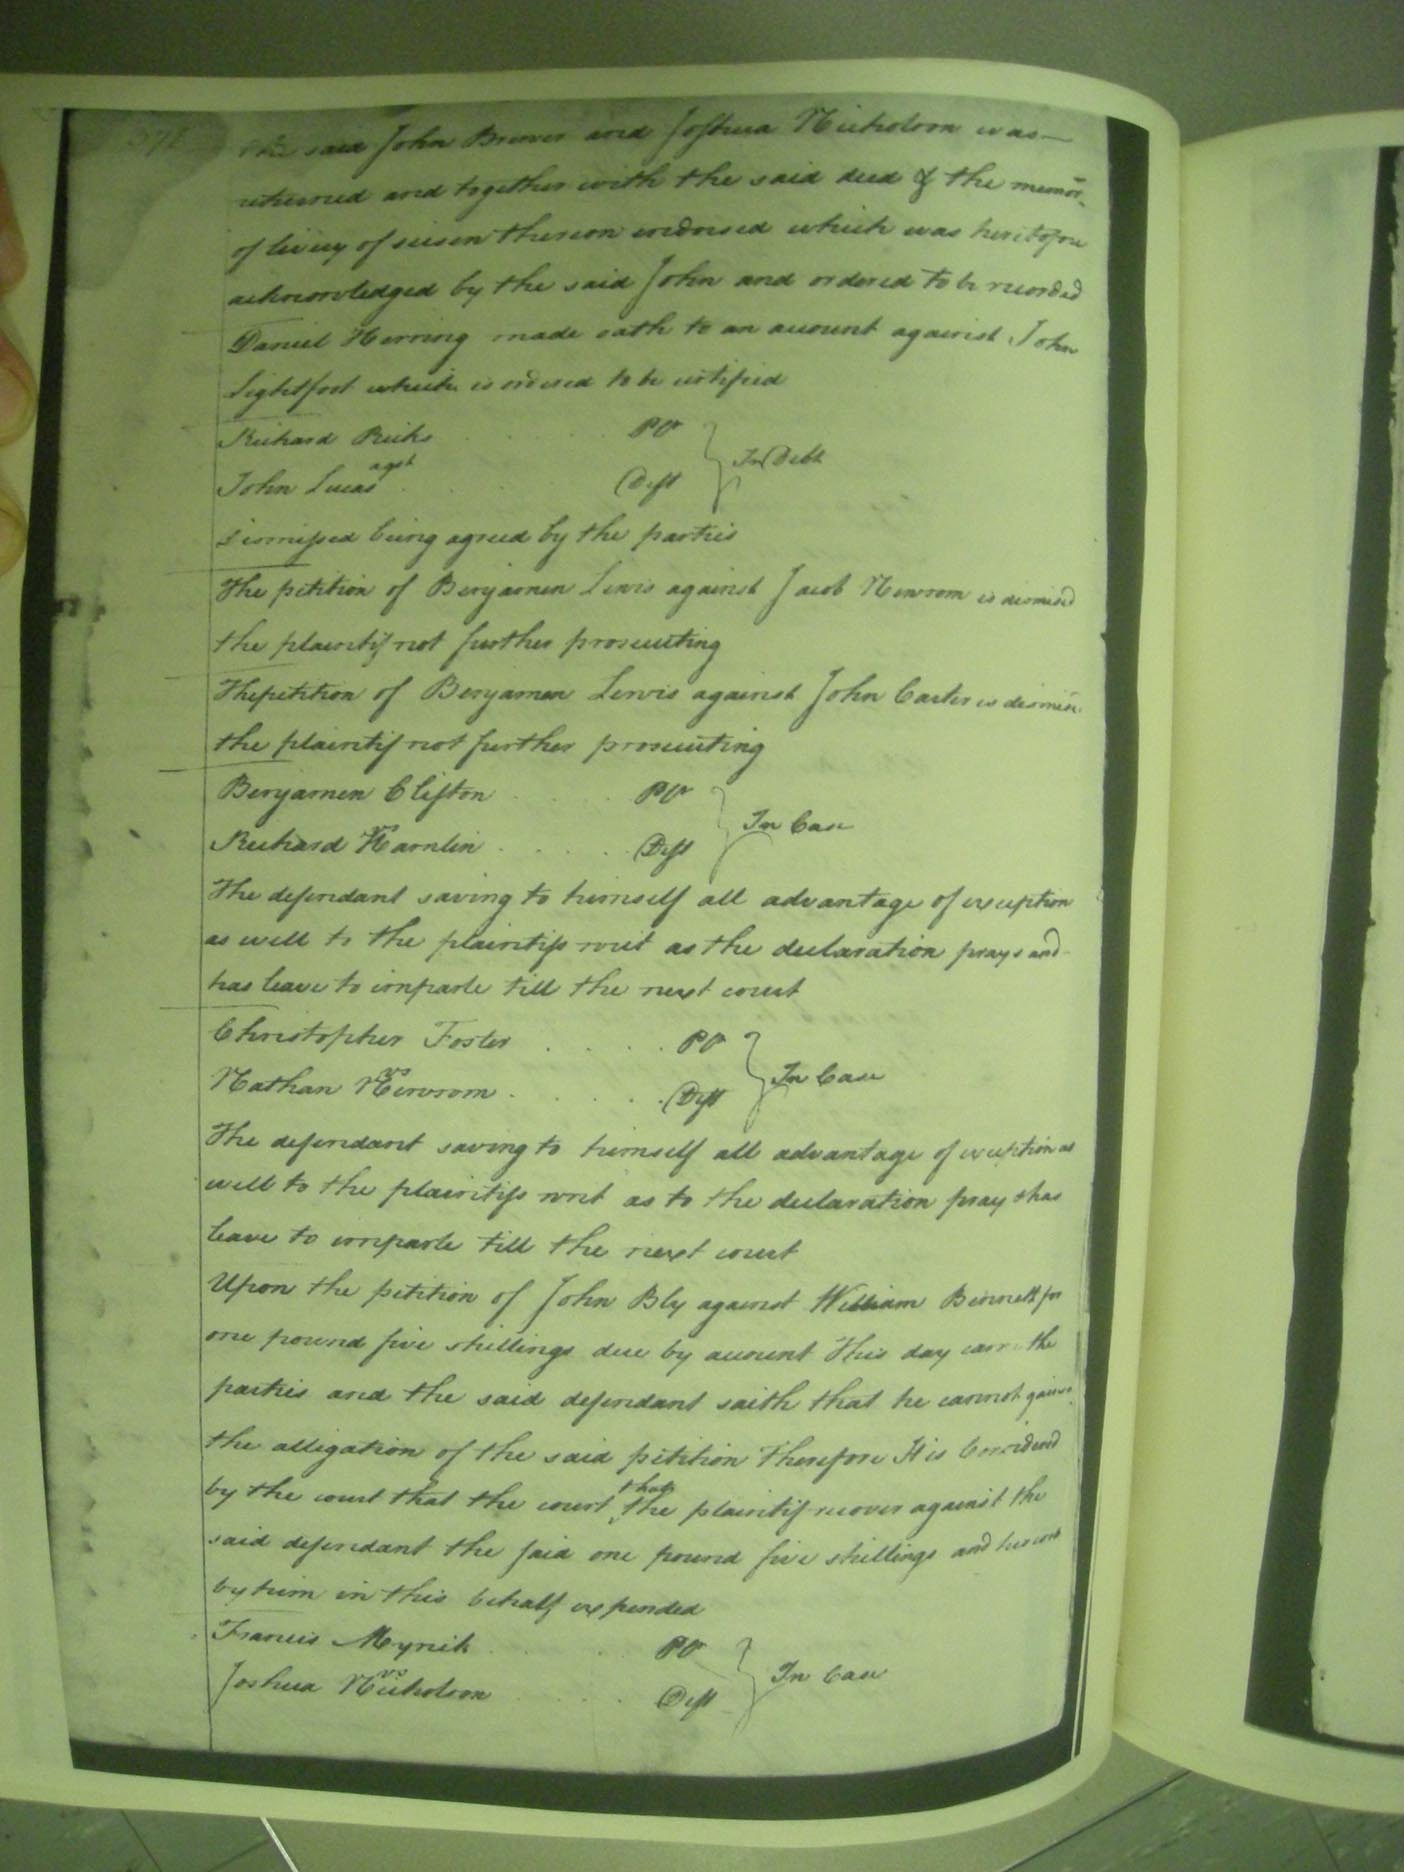 the said John Brewer and Joshua Nicholson was
returned and together with the said deed & the memo:
of livery of seisen thereon endorsed which was heretofore
acknowledged by the said John and ordered to be recorded
Daniel Herring made oath to an account against John
Lightfoot which is ordered to be certified
Richard Ricks . . . . Plt
agst
In Debt
John Lucas . . . Deft
dismissed being agreed by the parties
The petition of Benjamen Lewis against Jacob Newsom is dismised
the plaintif not further prosecuting
The petition of Benjamen Lewis against John Carter is dismis:
the plaintif not further prosecuting
Benjamen Clifton . . . . Plt
In Case
vs
Richard Hamlin . . . . . Deft
The defendant saving to himself all advantage of exception
as well to the plaintifs writ as the declaration prays and
has leave to imparle till the next court
Christopher Foster . . . . Plt
vs
In Case
Nathan Newsom . . . . . Deft
The defendant saving to himself all advantage of exception as
well to the plaintifs writ as to the declaration pray & has
leave to imparle till the next court
Upon the petition of John Bly against William Bennett for
one pound five shillings due by account This day came the
parties and the said defendant saith that he cannot gains
the alligation of the said petition Therefore It is Considered
that
by the court that the court the plaintif recover against the
said defendant the said one pound five shillings and his costs
by him in this behalf expended
Francis Myrick . . . . Plt
vs
In Case
Joshua Nicholson . . . . Deft